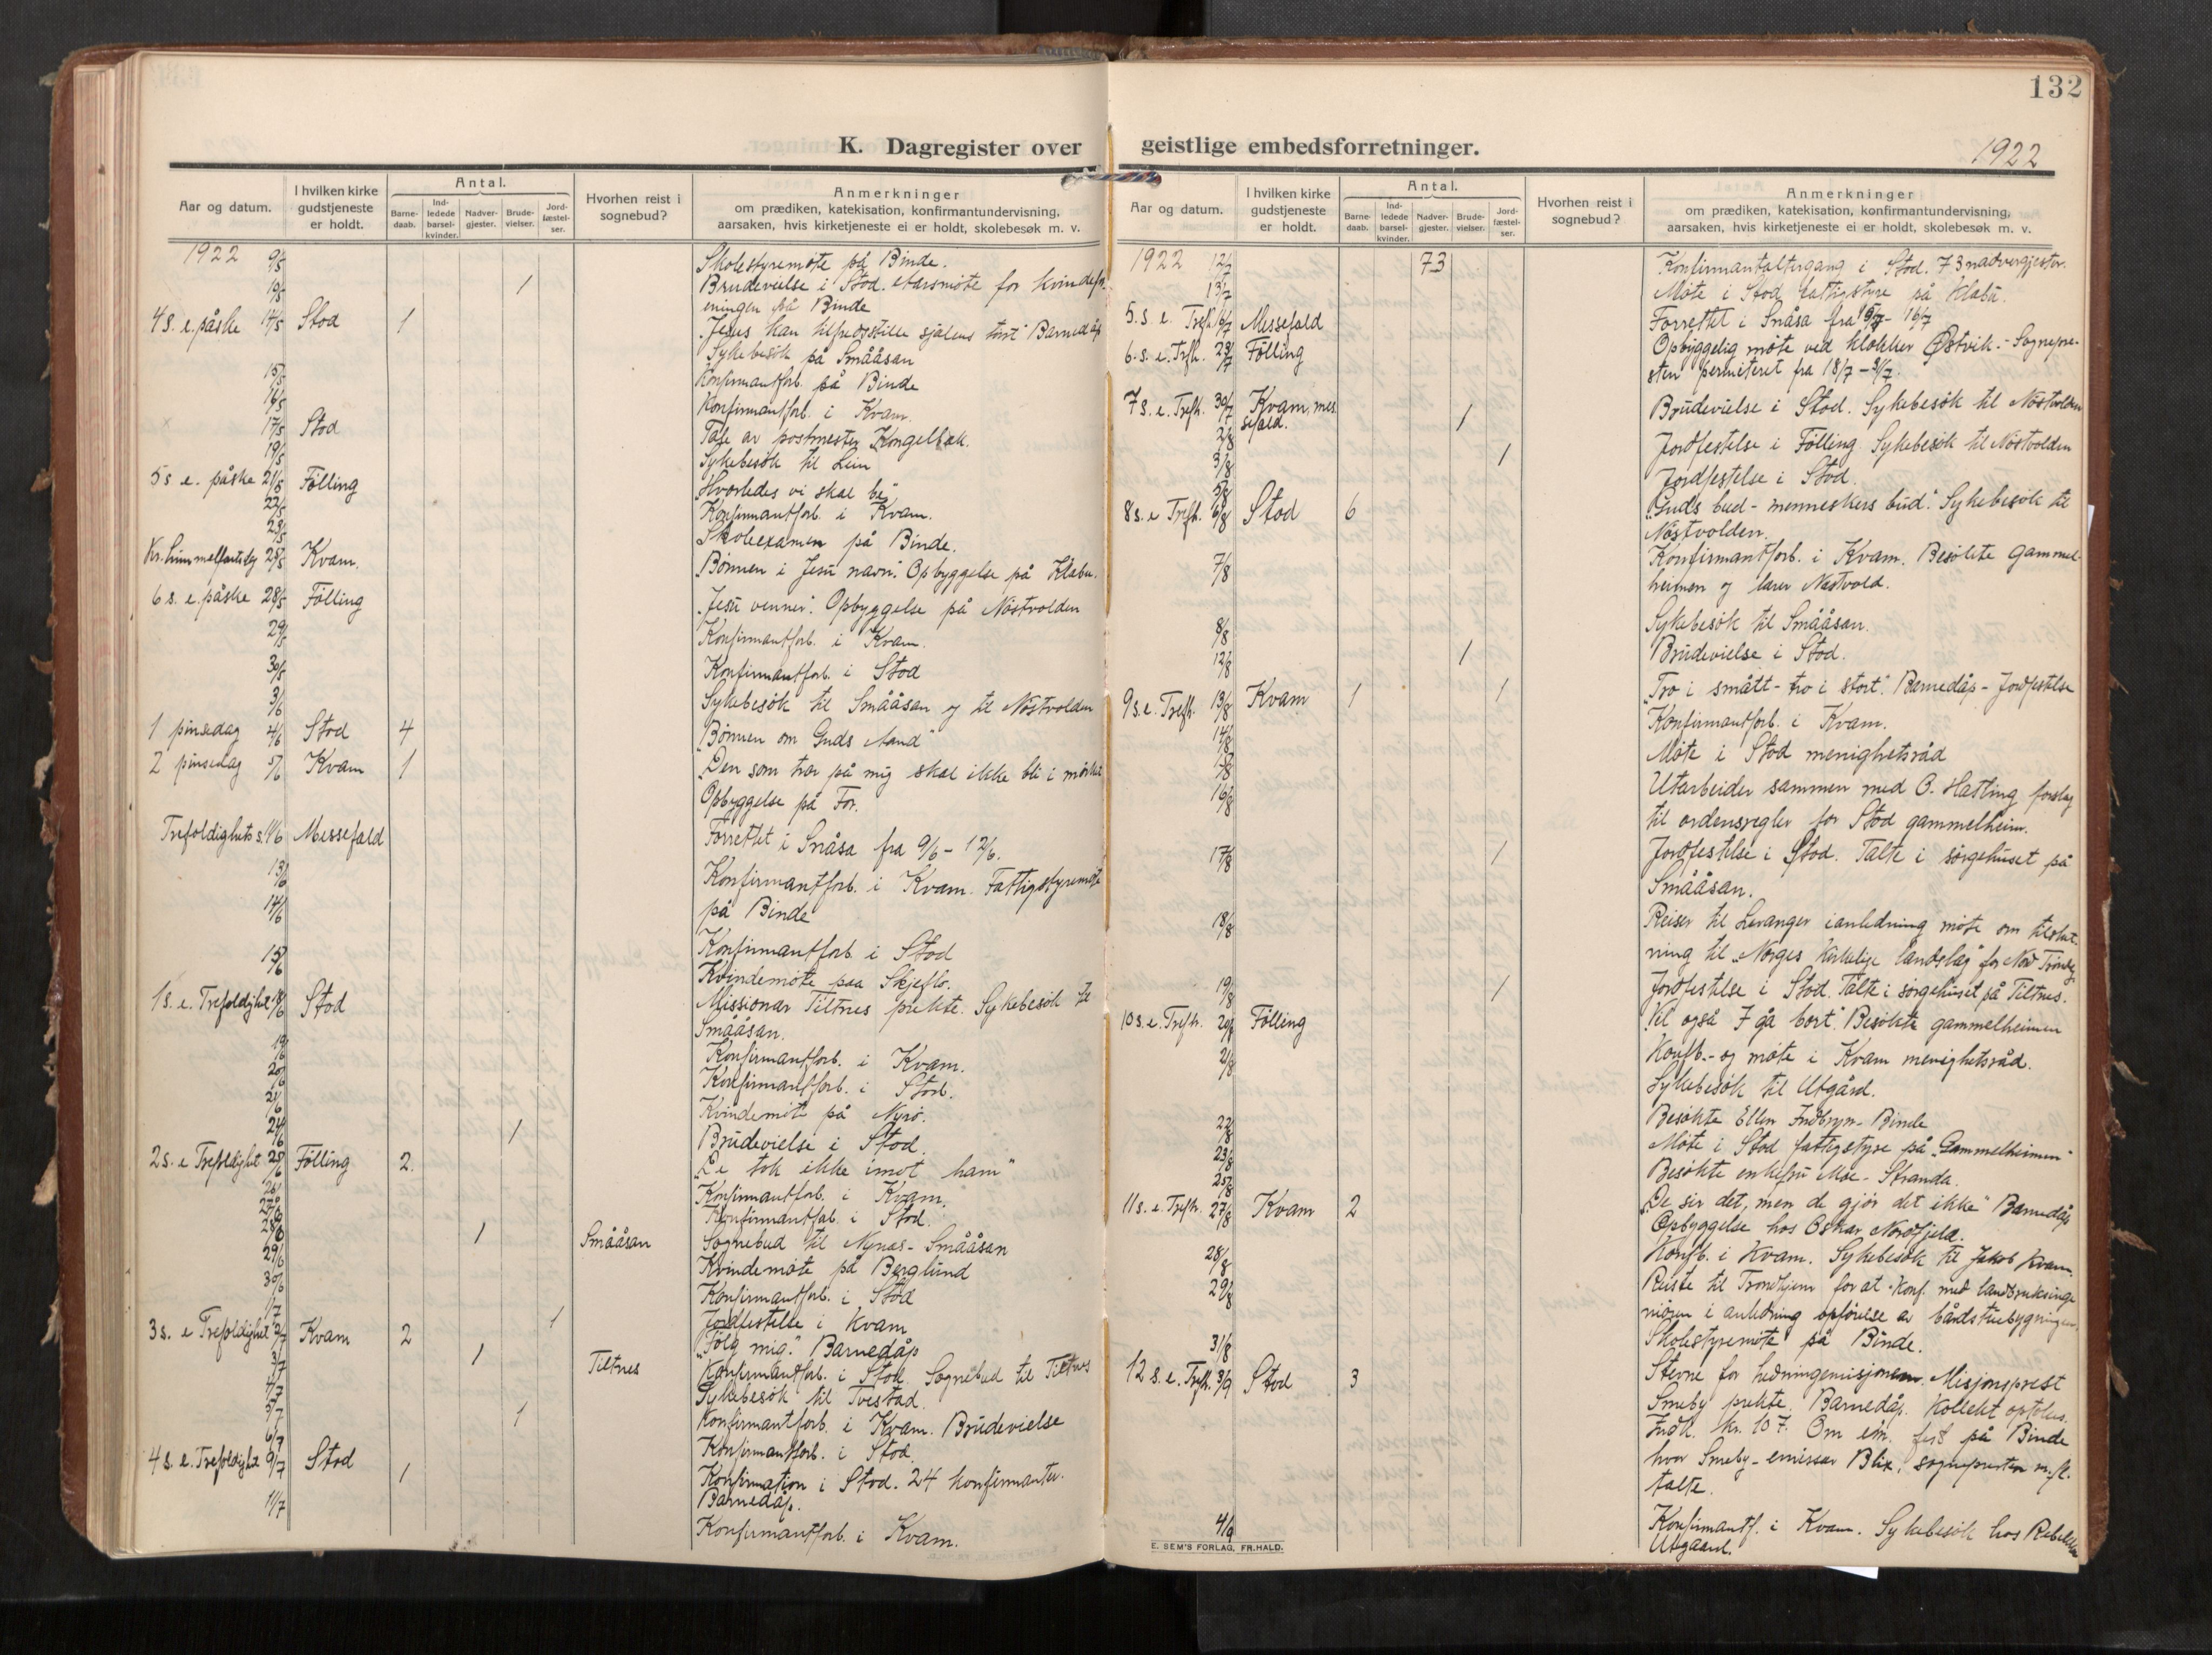 132
K. Dagregister over geistlige embedsforretninger.
1922
Aar og datum.
I hvilken kirke gudstjeneste er holdt.
Antal.
Barne-daab.
Ind-ledede barsel-kvinder.
Nadver-gjester.
Brude-vielser.
Jord-fæstel-ser.
Hvorhen reist i sognebud?
Anmerkninger
om prædiken, katekisation, konfirmantundervisning,
aarsaken, hvis kirketjeneste ei er holdt, skolebesøk m. v.
1922 9/5 Skolestyremøte på Binde.
1 Brudevielse i Stod. Aarsmøte for kvindefor-
eningen på Binde
4 s. e. påske 14/5 Stod 1 Jesus kan tilfredsstille sjælens tørst" Barnedåp
Sykebesøk på Smååsan
15/5 Konfirmantforb. på Binde
16/5 Konfirmantforb. i Kvam.
17/5 Stod Tale av postmester Kongelbæk.
19/5 Sykebesøk til Lein
5 s. e. påske 21/5 Følling Hvorledes vi skal be"
22/5 Konfirmantforb. i Kvam.
Skoleexamen på Binde.
Kr. himmelfartsdag 25/5 Kvam. Bønnen i Jesu navn". Opbyggelse på Klabu.
6 s. e. påske 28/5 Følling „Jesu venner". Opbyggelse på Nöstvolden
29/5 Konfirmantforb. i Kvam.
30/5 Konfirmantforb. i Stod
3/6 Sykebesøk til Smååsan og til Nöstvolden
1 pinsedag 4/6 Stod 4 „Bønnen om Guds Aand"
2 pinsedag 5/6 Kvam 1 „Den som tror på mig skal ikke bli i mørket
Opbyggelse på For.
Trefoldighets s. 11/6 Messefald Forrettet i Snåsa fra 9/6 - 12/6.
13/6 Konfirmantforb. i Kvam. Fattigstyremøte
på Binde
14/6 Konfirmantforb. i Stod
15/6 Kvindemøte paa Skjeflo.
1 s. e. Trefoldighet 18/6 Stod Missionær Tiltnes prekte. Sykebesøk til
Smååsan.
19/6 Konfirmantforb. i Kvam.
20/6 Konfirmantforb. i Stod.
21/6 Kvindemøte på Nyrö.
24/6 1 Brudevielse i Stod.
2 s. e Trefoldighet 25/6 Følling 2. „De tok ikke imot ham"
26/6 Konfirmantforb. i Kvam.
27/6 Konfirmantforb. i Stod.
28/6 1 Smååsan Sognebud til Nynas - Smååsan
29/6 Kvindemøte på Berglund
30/6 Konfirmantforb. i Stod
1/7 1 Jordfestelse i Kvam
3 s. e Trefoldighet 2/7 Kvam 2 „Følg mig." Barnedåp
3/7 1 Tiltnes Konfirmantforb. i Stod. Sognebud til Tiltnes
4/7 Sykebesøk til Tvestad.
5/7 1 Konfirmantforb. i Kvam. Brudevielse
6/7 Konfirmantforb. i Stod.
4 s. e. Trefoldighet 9/7 Stod 1 Konfirmation i Stod. 24 konfirmanter.
Barnedåp.
11/7 Konfirmantforb. i Kvam.
Aar og datum.
I hvilken kirke gudstjeneste er holdt.
Antal.
Barne-daab.
Ind-ledede barsel-kvinder.
Nadver-gjester.
Brude-vielser.
Jord-fæstel-ser.
Hvorhen reist i sognebud?
Anmerkninger
om prædiken, katekisation, konfirmantundervisning,
aarsaken, hvis kirketjeneste ei er holdt, skolebesøk m. v.
1922 12/7 73 Konfirmantaltergang i Stod. 73 nadvergjester.
13/7 Møte i Stod fattigstyre på Klabu.
5. s. e. Trefh. 16/7 Messefald Forrettet i Snåsa fra 15/7 - 16/7
6. s. e. Trefh. 23/7 Følling Opbyggelig møte ved klokker Østvik. - Sognepre-
sten permiteret fra 18/7 -
7 s. e. Trefh. 30/7 Kvam, mes-
sefald. 1 Brudevielse i Stod. Sykebesøk til Nöstvolden
2/8 Jordfestelse i Følling Sykebesøk til Nöstvolden
3/8 1 Jordfestelse i Stod.
8 s. e Trefh. 6/8 Stod 6 „Guds bud - menneskers bud". Sykebesøk til
Nöstvolden.
7/8 Konfirmantforb. i Kvam. Besøkte Gammel-
heimen og lærer Nöstvold.
8/8 Sykebesøk til Smååsan.
12/8 1 Brudevielse i Stod.
9 s. e. Trefh. 13/8 Kvam 1 1 „Tro i smått - tro i stort". Barnedåp - Jordfestelse
14/8 Konfirmantforb. i Kvam.
15/8 Møte i Stod menighetsråd
16/8 Utarbeider sammen med O. Hatling forslag
til ordensregler for Stod gammelheim.
17/8 1 Jordfestelse i Stod. Talte i sørgehuset på
Smååsan.
18/8 Reiser til Levanger i anledning møte om tilslut-
ning til „Norges kirkelige landslag" for Nord Trøndelag
19/8 1 Jordfestelse i Stod. Talte i sørgehuset på Tiltnes.
10 s. e. Trefh. 20/8 Følling Vil også I gå bort". Besøkte gammelheimen
21/8 Konfb. - og møte i Kvam menighetsråd.
Sykebesøk til Utgård.
22/8 Besøkte Ellen Indbryn - Binde
23/8 Møte i Stod fattigstyre på „Gammelheimen"
25/8 Besøkte enkefru Moe - Stranda.
11 s. e. Trefh. 27/8 Kvam 2 „De sier det, men de gjør det ikke" Barnedåp
Opbyggelse hos Oskar Nordfjeld.
28/8 Konfb. i Kvam. Sykebesøk til Jakob Kvam.
29/8 Reiste til Trondhjem for at konf. med landbruksinge
niøren i anledning opførelse av bårdstuebygningen.
31/8 Skolestyremøte på Binde.
12 s. e. Trefh. 3/9 Stod 3 Stevne for hedningemisjonen. Misjonsprest
Smeby prekte. Barnedåp. Kollekt optokes.
Indk. kr. 107. Om em. fest på Binde
hvor Smeby - emissær Blix, sognepresten m. fl.
talte.
4/9 Konfirmantf. i Kvam. Sykebesøk hos Rebekka
Utgaard.
E. SEM'S FORLAG, FR.HALD.